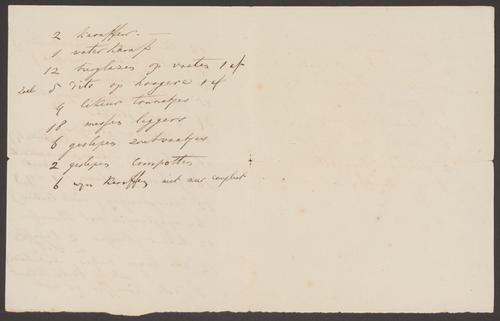 2 karaffen —
1 water karaf
12 bierglazen op voeten 1 ef
5 dito op hoogere 1 ef
9 likeur tonnetjes
18 messen leggers
6 geslepen zoutvaatjes
2 geslepen Compotten
6 wyn Karaffen niet compleet